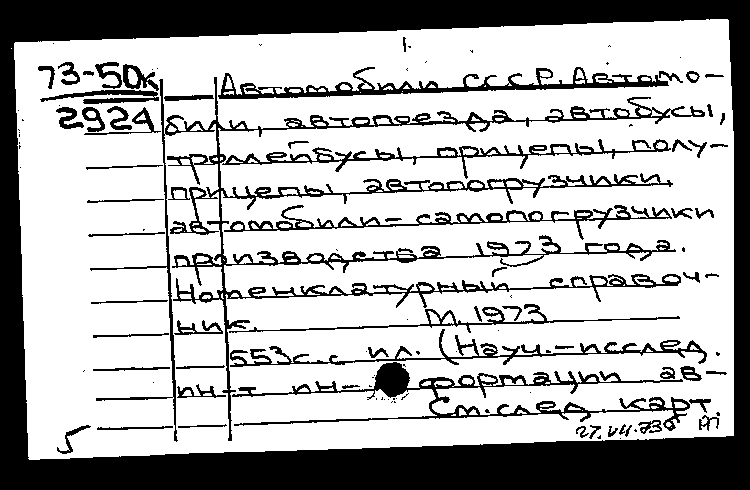 73-50к Автомобили СССР. Автомо-
2924 били, автопоезда, автобусы,
троллейбусы, прицепы, полу-
прицепы, автопогрузчики,
автомобили-самопогрузчики
производства 1973 года.
Номенклатурный справоч-
ник. М., 1973
553с. с ил. (Науч.-исслед.
ин-т ин-формации ав-
См. след. карт.
5 27.VII.73г